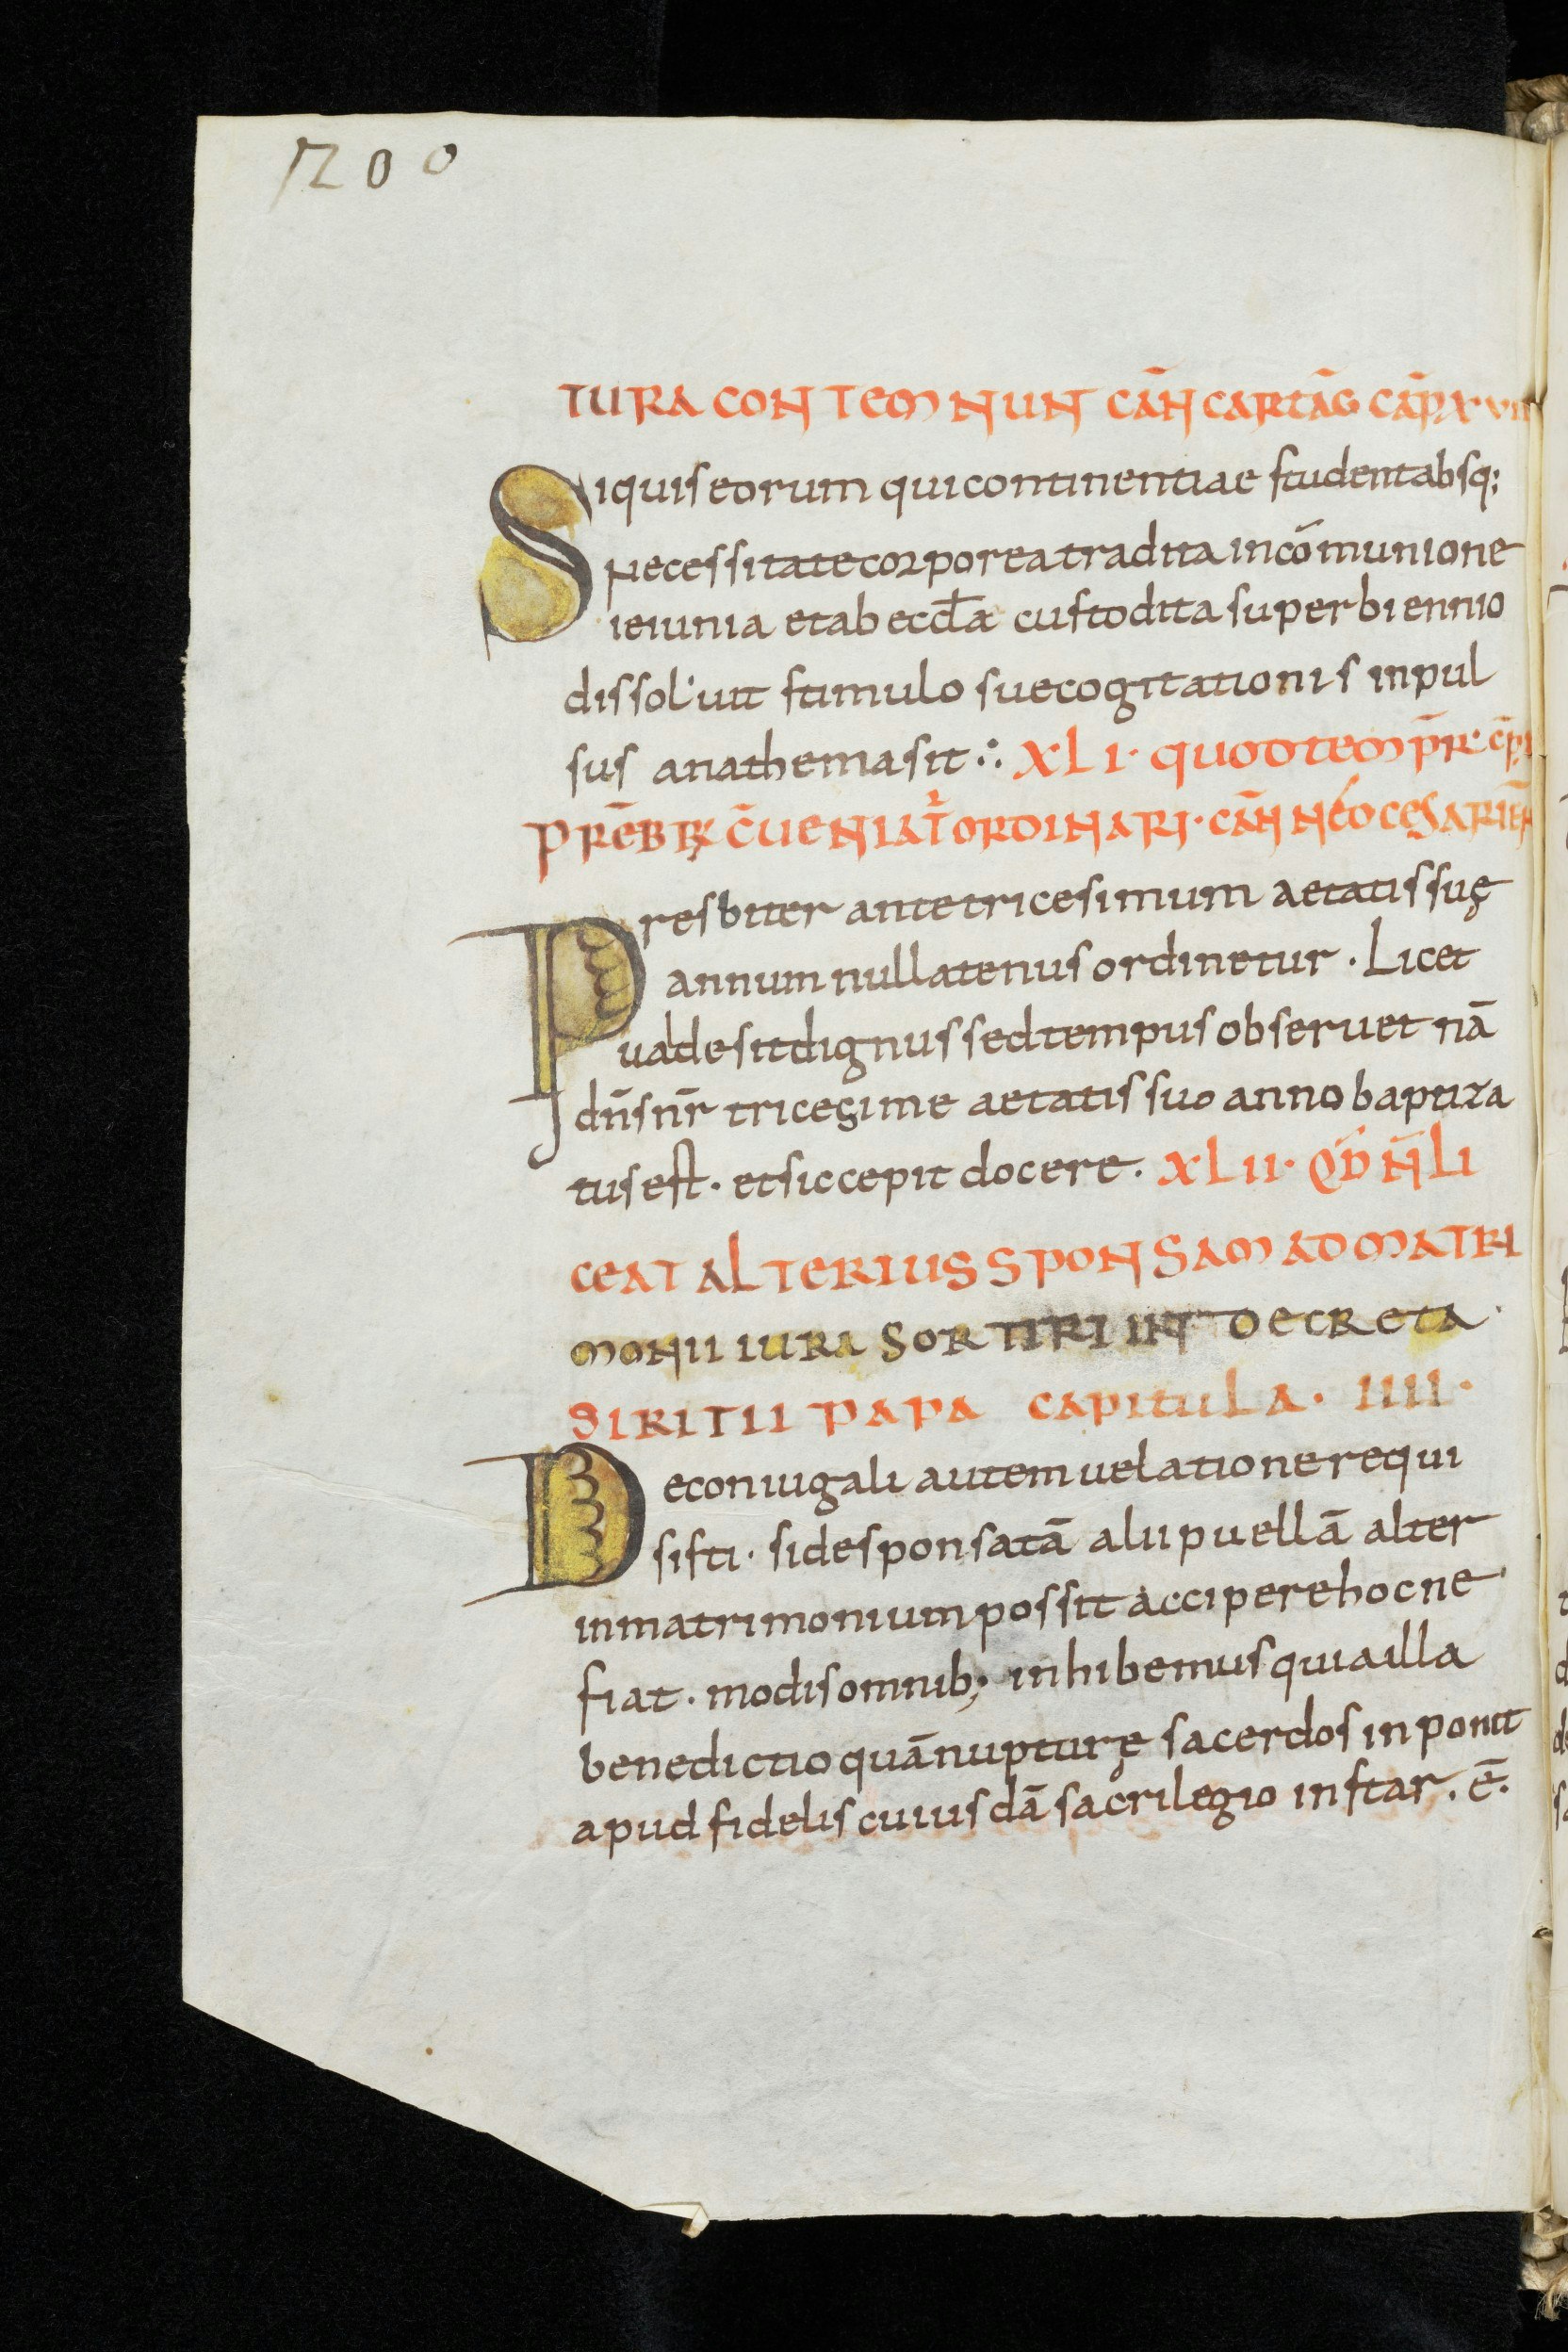 200
TURA CONTEMNUNT CAN̄ CARTAḠ CAP̄ XVIII
Siquis eorum qui continentiae student absq;
necessitate corporea tradita in cōmunione
ieiunia et ab eccła custodita super biennio
dissoluit stimulo sue cogitationis inpul
sus anathema sit ∴ XLI· QUOD TEMP̄R
PRESB̄R C̄UENIAT ORDINARI· CAN̄ NEOCESARIEN̄
Presbiter ante tricesimum aetatis suę
annum nullatenus ordinetur · Licet
ualde sit dignus sed tempus obseruet nā
dn̄s nr̄ tricesime aetatis suo anno baptiza
tus est · et sic cepit docere · XLII· QD̄ N̄ LI
CEAT ALTERIUS SPONSAM AD MATRI
MONII IURA SORTIRI INT DECRETA·
SIRITII PAPA CAPITULA · IIII ·
De coniugali autem uelatione requi
sisti · si desponsatā alii puellā alter
in matrimonium possit accipere hoc ne
fiat · modis omnib; inhibemus quia illa
benedictio quā nupturę sacerdos inponit
apud fidelis cuiusdā sacrilegio instar · ē·